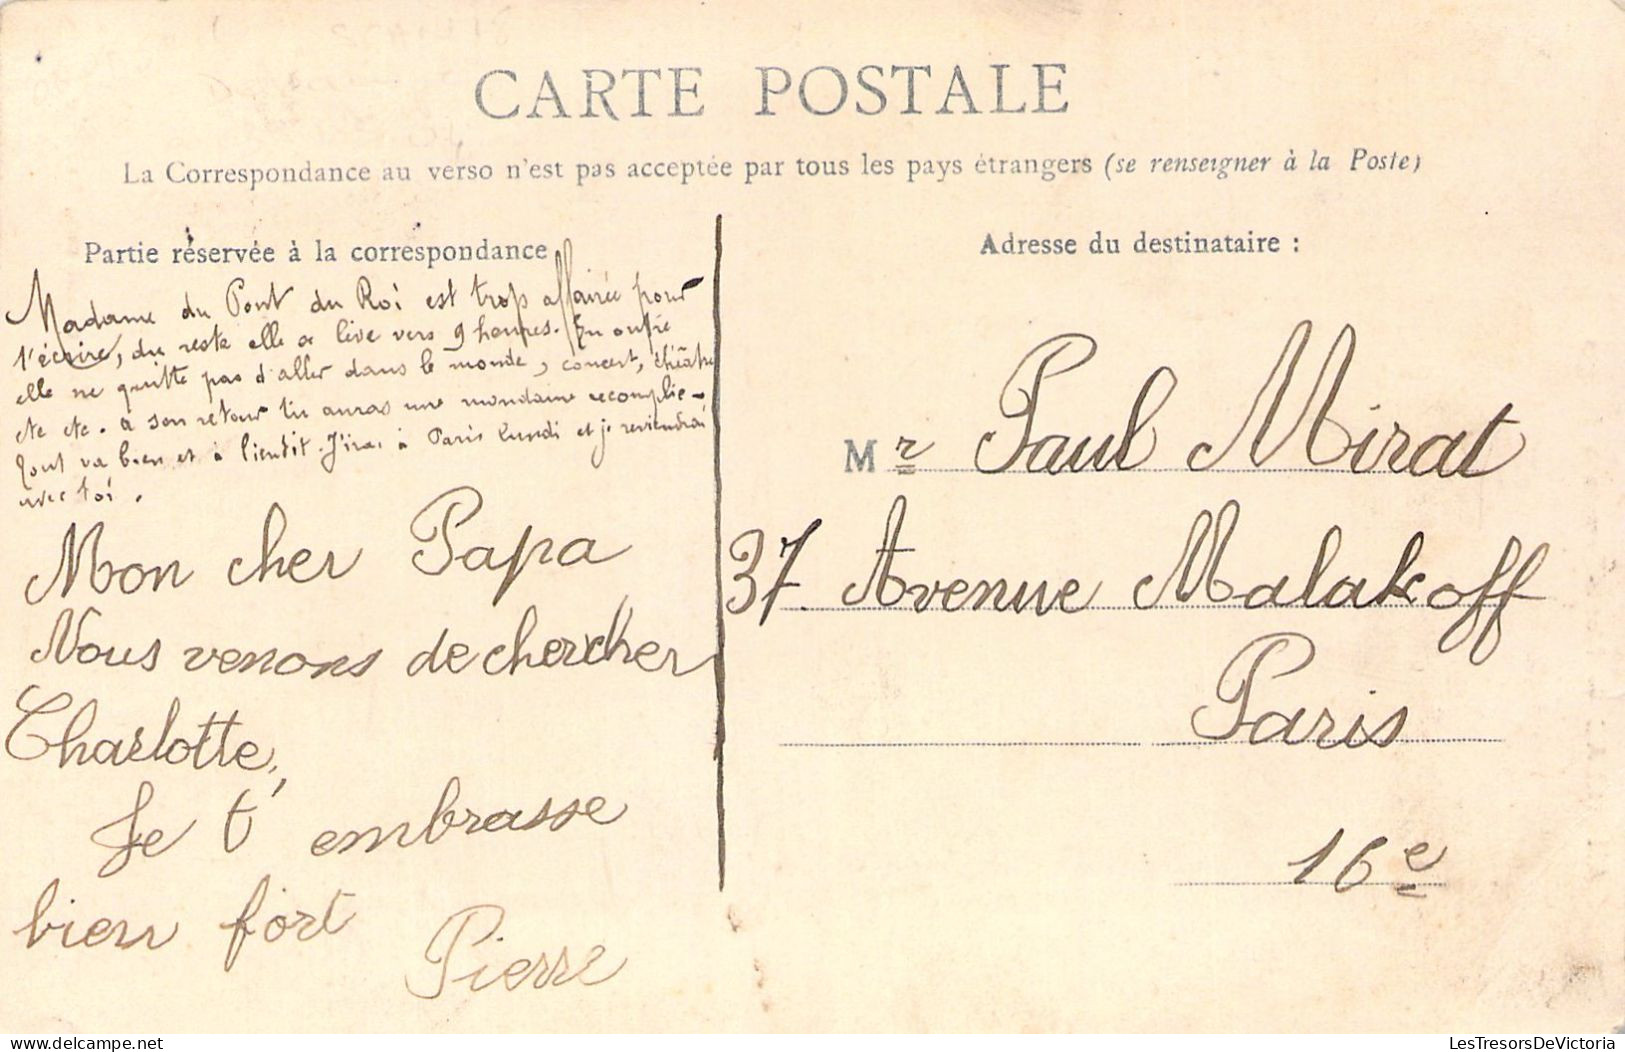 CARTE POSTALE
La Correspondance au verso n'est pas acceptée par tous les pays étrangers (se renseigner à la Poste)
Partie réservée à la correspondance
Madame du Pont du Roi est trop affairée pour
t'écrire, du reste elle se lève vers 9 heures. En outre
elle ne quitte pas d'aller dans le monde, concert, théâtre
etc etc. à son retour tu auras une mondaine accomplie -
Tout va bien et à bientôt. J'irai à Paris lundi et je reviendrai
avec toi.
Mon cher Papa
Nous venons de chercher
Charlotte,
Je t'embrasse
bien fort
Pierre
Adresse du destinataire :
Mr Paul Mirat
37. Avenue Malakoff
Paris
16e
delcampe.net
LesTresorsDeVictoria